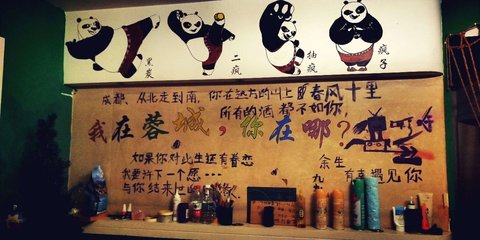 二疯
抽疯
疯子
成都，从北走到南，你在远方的山上 春风十里
所有的酒 都不如你，
我在蓉城，你在哪？
如果你对此生还有眷恋
我要许下一个愿……
与你结
余生
有幸遇见你